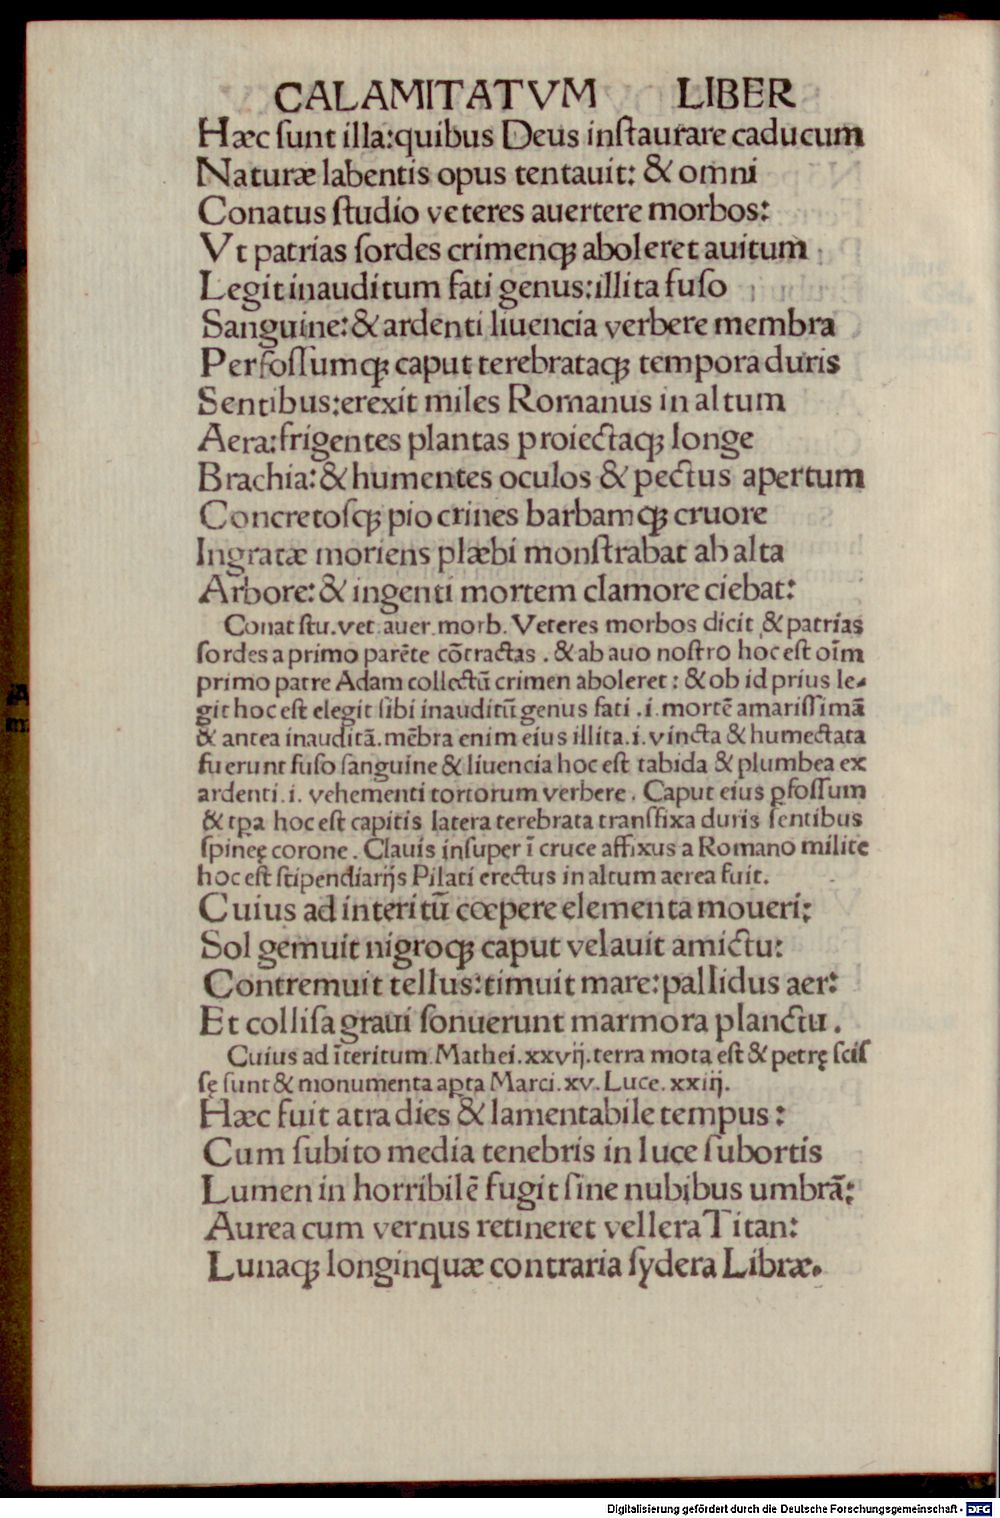 CALAMITATVM LIBER
Hæc ſunt illa:quibus Deus inſtaurare caducum
Naturæ labentis opus tentauit: & omni
Conatus ſtudio veteres auertere morbos:
Vt patrias ſordes crimenqꝫ aboleret auitum
Legit inauditum fati genus:illita fuſo
Sanguine:& ardenti liuencia verbere membra
Perfoſſumqꝫ caput terebrataqꝫ tempora duris
Sentibus:erexit miles Romanus in altum
Aera:frigentes plantas proiectaqꝫ longe
Brachia:& humentes oculos & pectus apertum
Concretoſqꝫ pio crines barbamqꝫ cruore
Ingratæ moriens plæbi monſtrabat ab alta
Arbore:& ingenti mortem clamore ciebat:
Conat ſtu.vet.auer.morb. Veteres morbos dicit ,& patrias
ſordes a primo parēte cōtractas . & ab auo noſtro hoc eſt oīm
primo patre Adam collectū crimen aboleret : & ob id prius le-
git hoc eſt elegit ſibi inauditū genus fati .i. mortē amariſſimā
& antea inauditā. mēbra enim eius illita.i. vincta & humectata
fuerunt fuſo ſanguine & liuencia hoc eſt tabida & plumbea ex
ardenti.i. vehementi tortorum verbere. Caput eius ꝑfoſſum
& tꝑa hoc eſt capitis latera terebrata tranſfixa duris ſentibus
ſpineę corone. Clauis inſuper ī cruce affixus a Romano milite
hoc eſt ſtipendiarijs Pilati erectus in altum aerea fuit.
Cuius ad interitū cœpere elementa moueri;
Sol gemuit nigroqꝫ caput velauit amictu:
Contremuit tellus:timuit mare:pallidus aer:
Et colliſa graui ſonuerunt marmora planctu.
Cuius ad īteritum.Mathei.xxvij.terra mota eſt & petrę ſciſ
ſę ſunt & monumenta aꝑta Marci.xv.Luce.xxiij.
Hæc fuit atra dies & lamentabile tempus:
Cum ſubito media tenebris in luce ſubortis
Lumen in horribilē fugit ſine nubibus umbrā;
Aurea cum vernus retineret vellera Titan:
Lunaqꝫ longinquæ contraria ſydera Libræ.
Digitalisierung gefördert durch die Deutsche Forschungsgemeinschaft - DFG